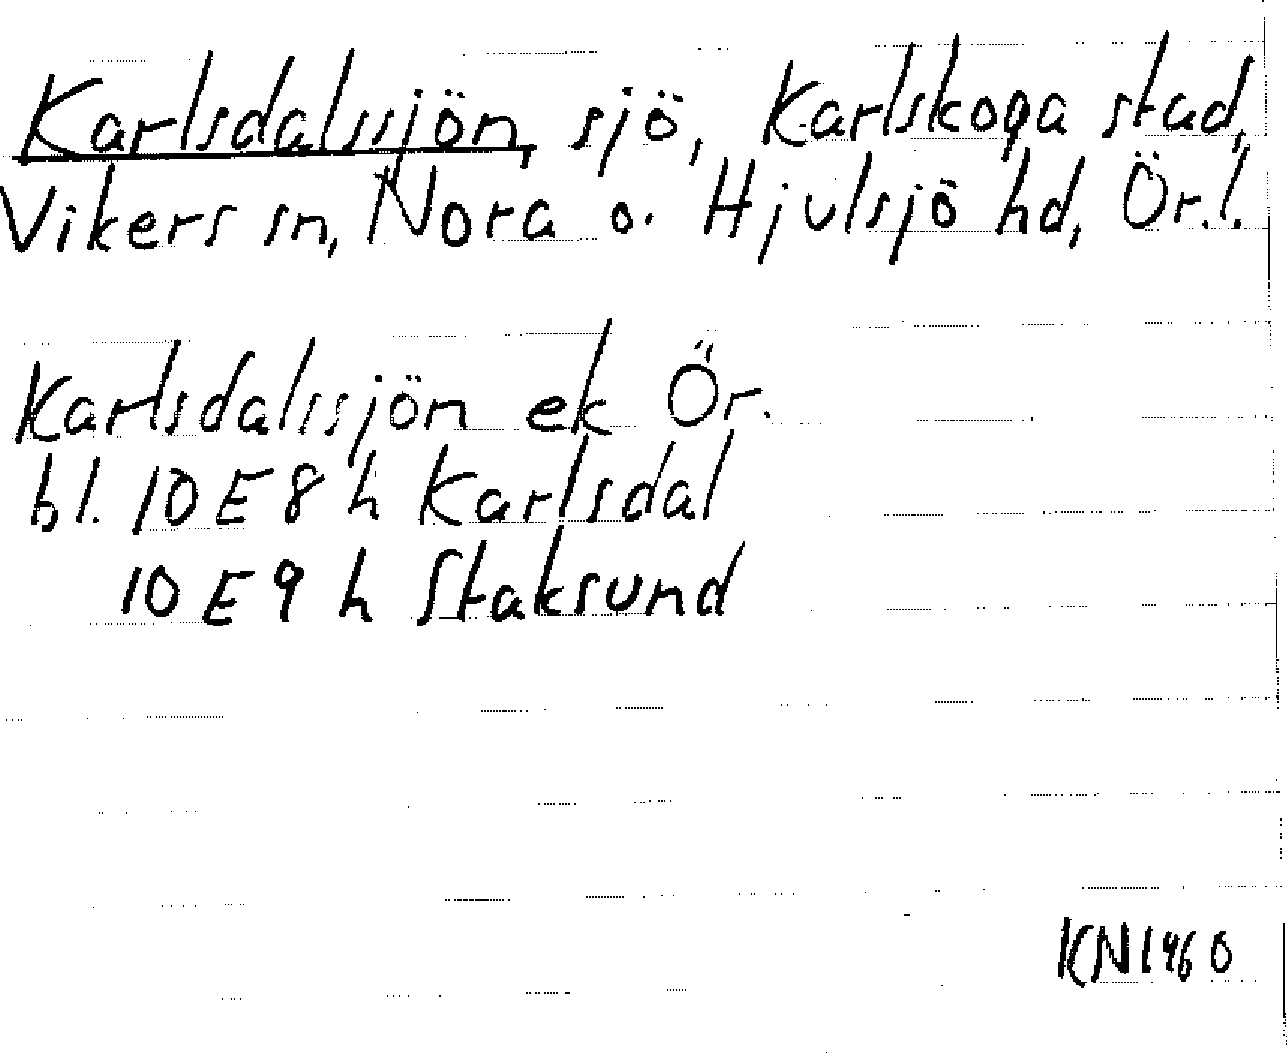 Karlsdalssjön, sjö, Karlskoga stad,
Vikers sn, Nora o. Hjulsjö hd, Ör.l.
Karlsdalssjön ek Ör.
bl. 10 E 8 h Karlsdal
10 E 9 h Staksund
KN 1960